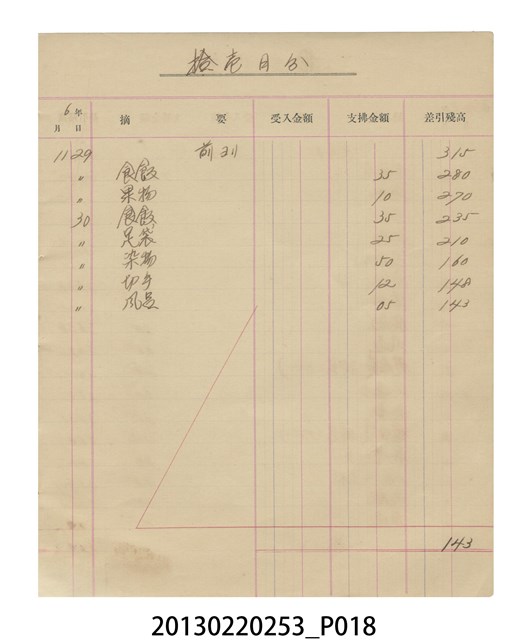 拾壱月分
6年 月 日 摘 要 受入金額 支拂金額 差引殘高
11 29 前ヨリ 315
〃 食飯 35 280
〃 果物 10 270
30 食飯 35 235
〃 足袋 25 210
〃 染物 50 160
〃 切手 12 148
〃 風呂 05 143
143
20130220253_P018